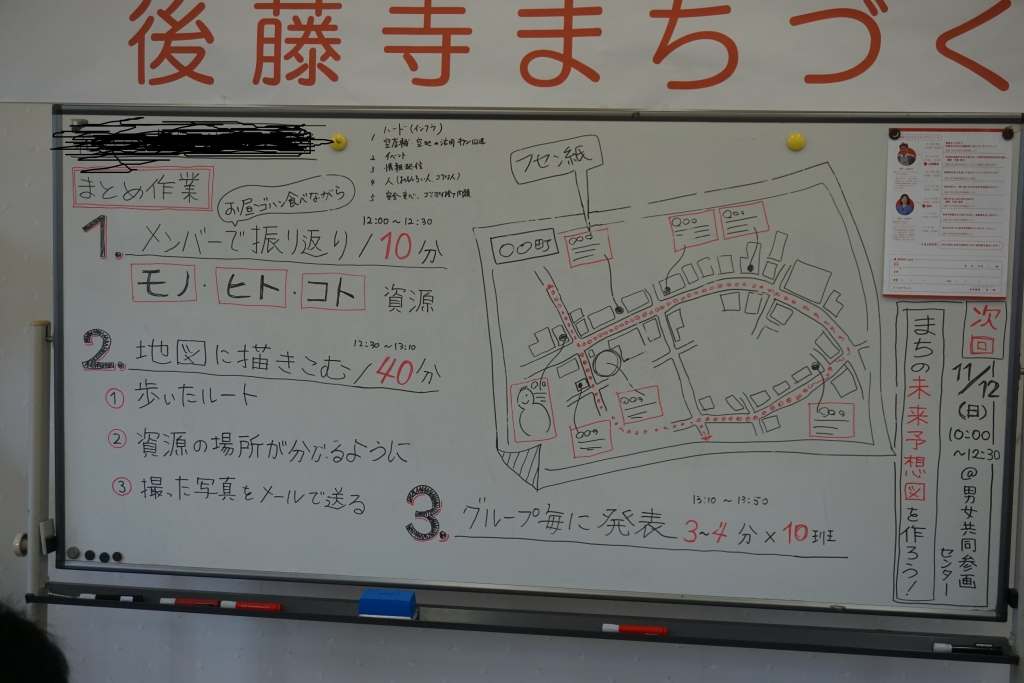 後藤寺まちづく
ハード(インフラ)
1 空店舗 空地の活用
2 イベント
3 情報発信
4 人
5
まとめ作業
お昼ゴハン食べながら
12:00〜12:30
1. メンバーで振り返り/10分
モノ・ヒト・コト 資源
12:30〜13:10
2. 地図に描きこむ/40分
① 歩いたルート
② 資源の場所が分かるように
③ 撮った写真をメールで送る
13:10〜13:50
3. グループ毎に発表 3~4分×10班
フセン紙
〇〇町
次回
11/12
(日)
10:00
~12:30
@男女共同参画
センター
まちの未来予想図を作ろう!